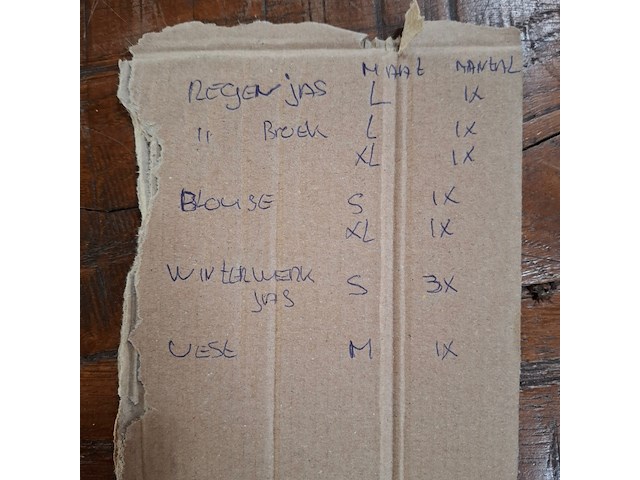 MAAT AANTAL
REGENJAS L 1X
" BROEK L 1X
XL 1X
BLOUSE S 1X
XL 1X
WINTERWERK
JAS S 3X
VEST M 1X